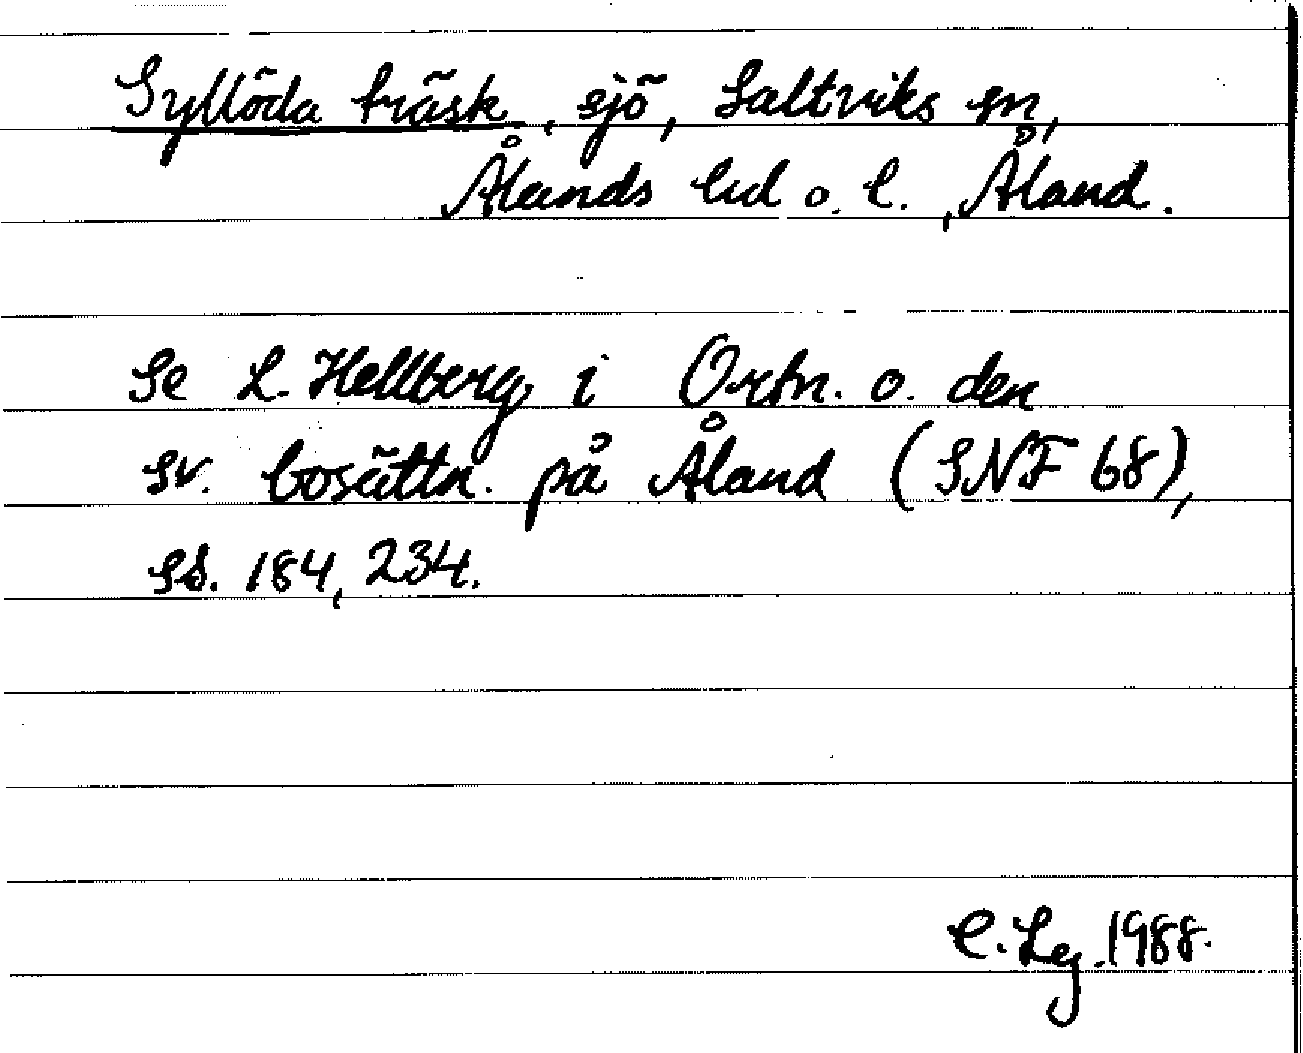 Syllöda träsk, sjö, Saltviks sn,
Ålands hd o. l., Åland.
Se L. Hellberg i Ortn. o. den
sv. bosättn. på Åland (SNF 68),
ss. 184, 234.
1988.